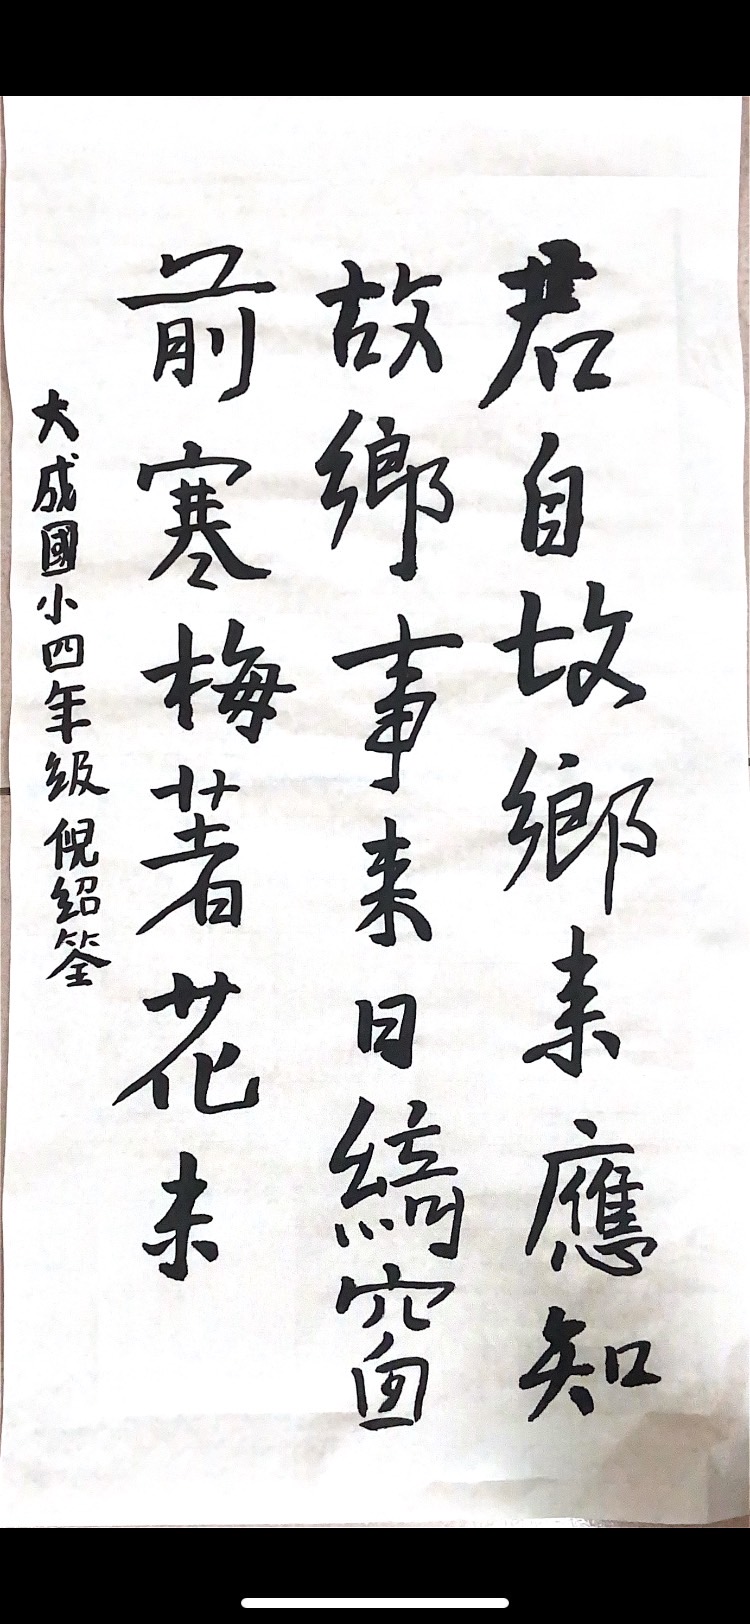 君自故鄉来應知
故鄉事来日綺窗
前寒梅著花未
大成國小四年級倪紹筌